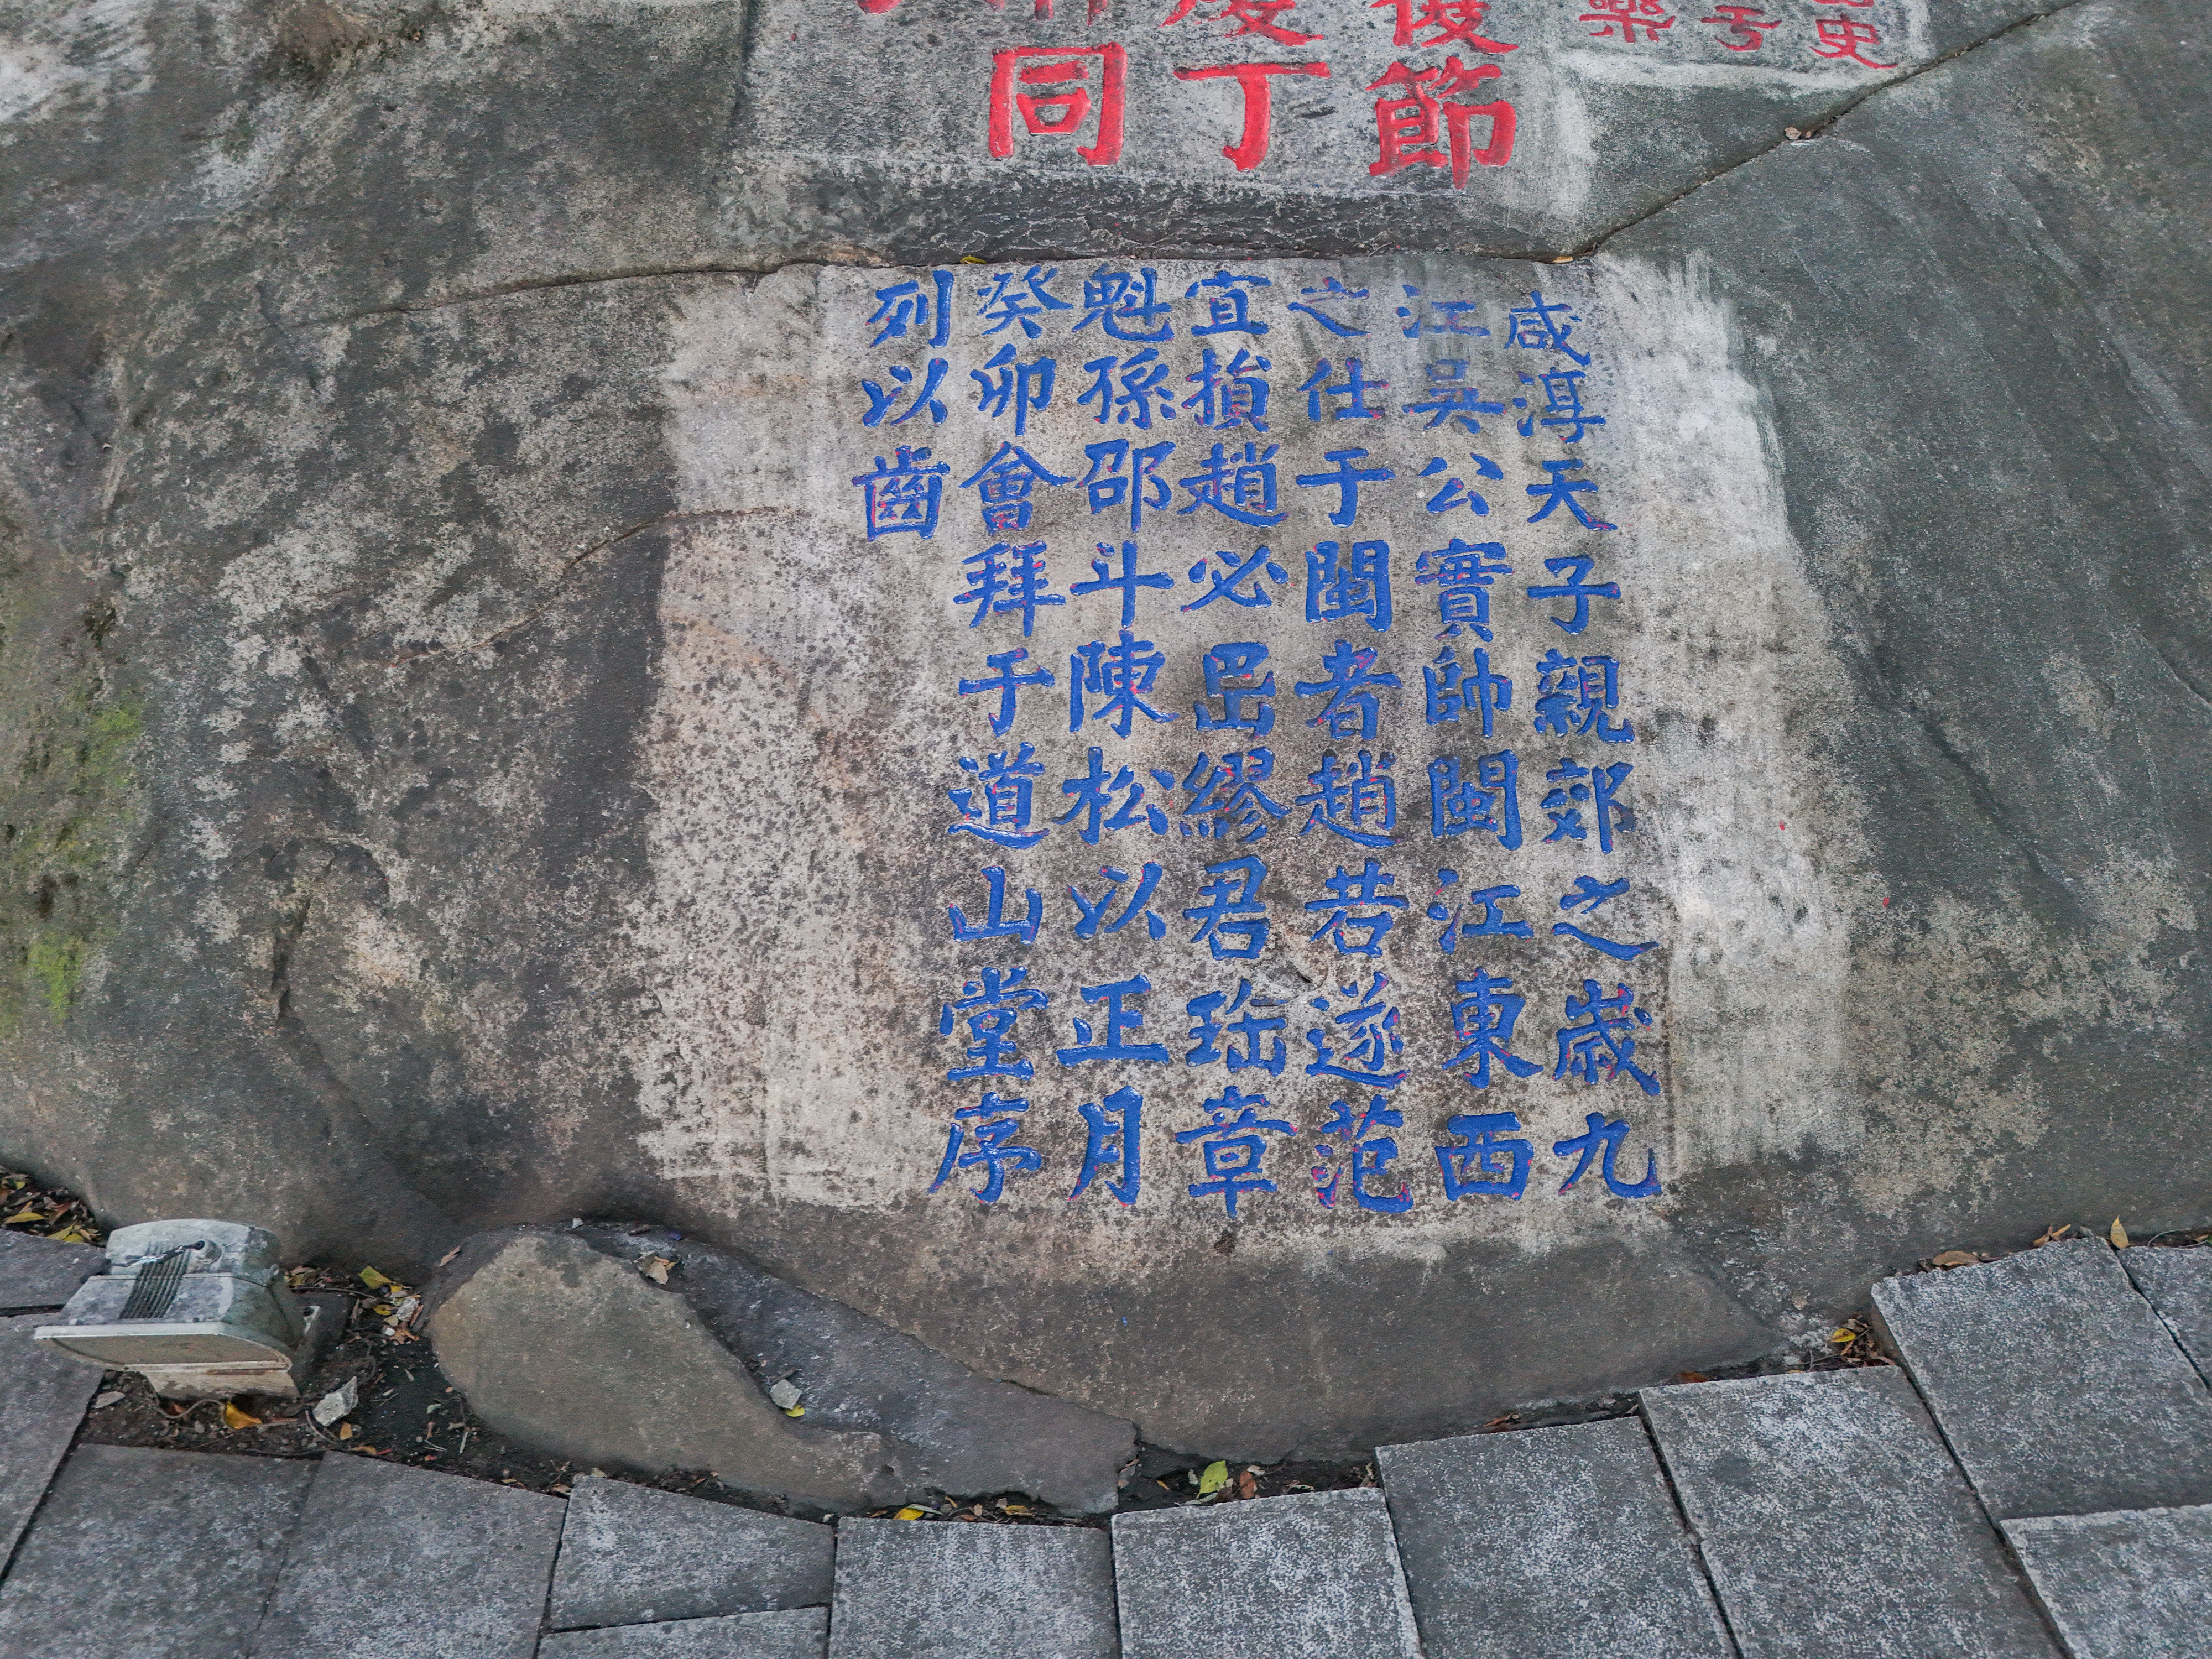 史
樂
節
丁
同
咸淳天子親郊之歲九
江吳公實帥閩江東西
之仕于閩者趙若遂范
宜損趙必岊繆君珤章
魁孫邵斗陳松以正月
癸卯會拜于道山堂序
列以齒